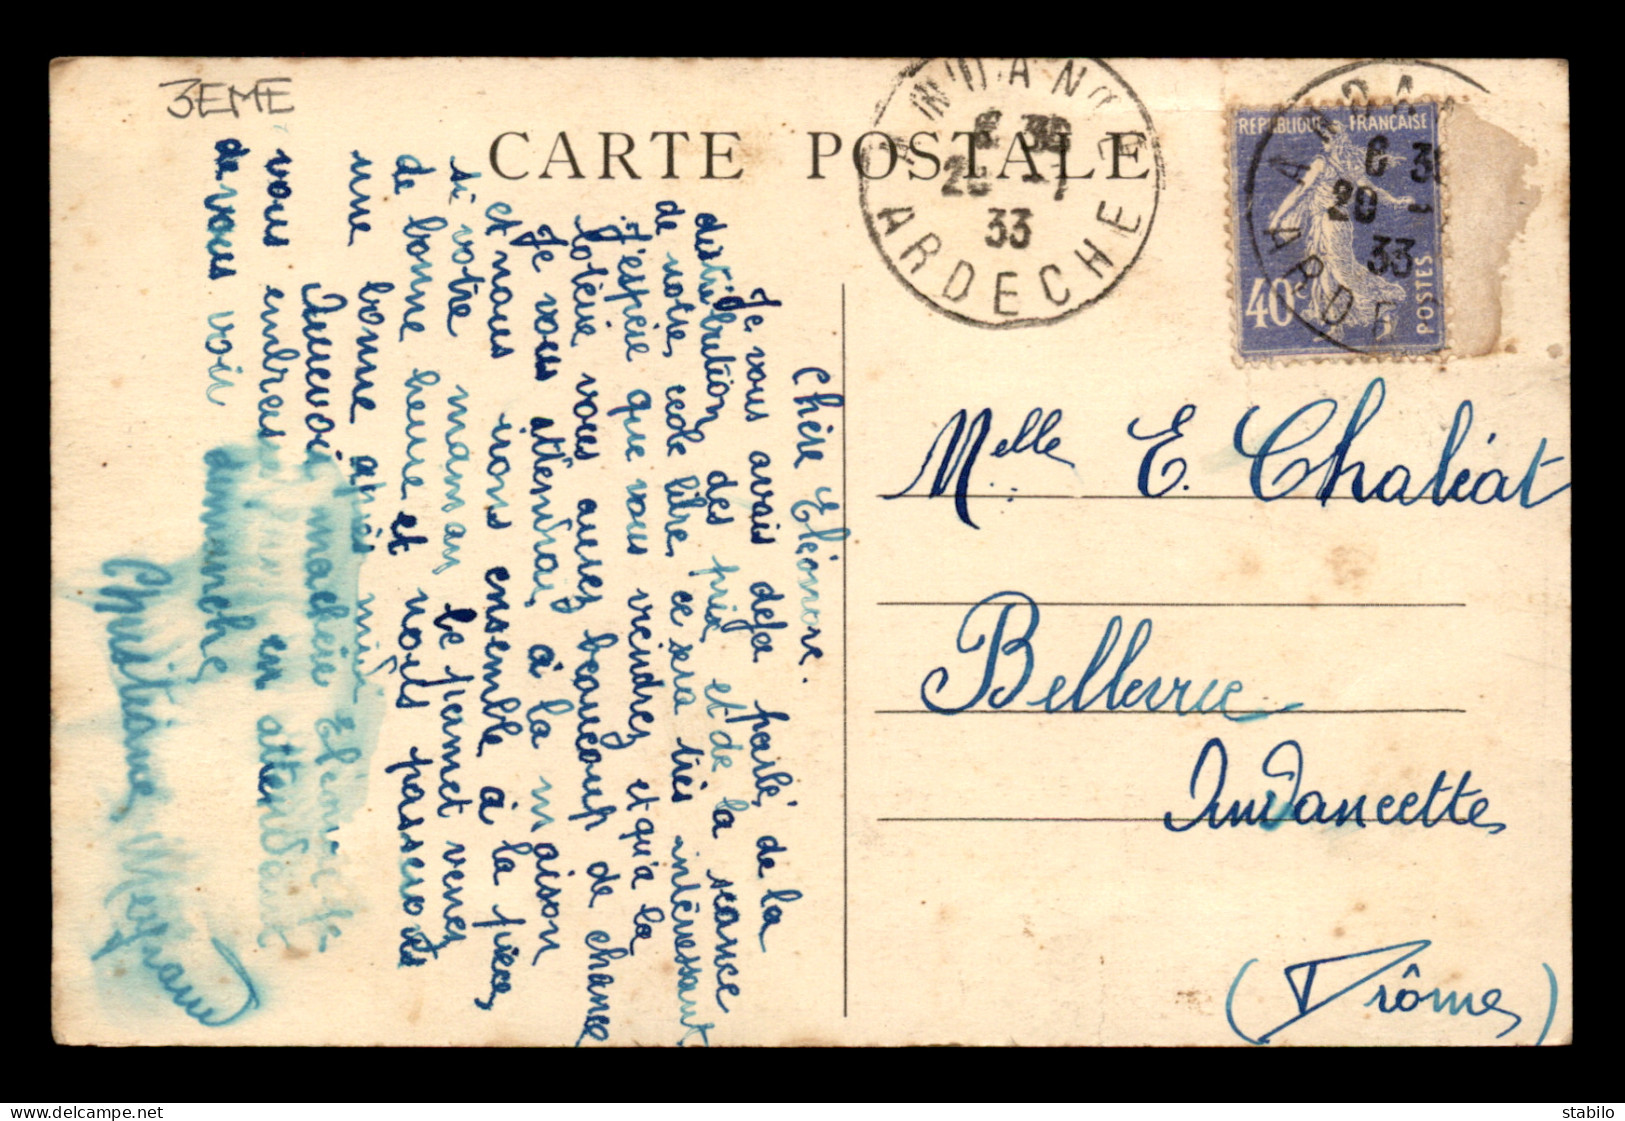 3EME
CARTE POSTALE
ANDANCE
6 30
20 -7
33
ARDECHE
REPUBLIQUE FRANÇAISE
40c
POSTES
6 30
20 -
33
ARDE
Chère Eléonore.
Je vous avais deja parlé, de la
distribution des prix, et de la seance
de notre, ecole libre, ce sera très intéressant
J'espère que vous viendrez et qu'a la
loterie vous aurez beaucoup de chance
Je vous attendrai, à la maison
et nous irons ensemble à la pièce,
si votre maman le permet venez
de bonne heure et nous passerons
une bonne après midi
Aurevoir ma chère Eléonore je
vous embrasse en attendant
de vous voir dimanche
Christiane
Melle E. Chaléat
Bellevue
Andancette
(Drôme)
stabilo